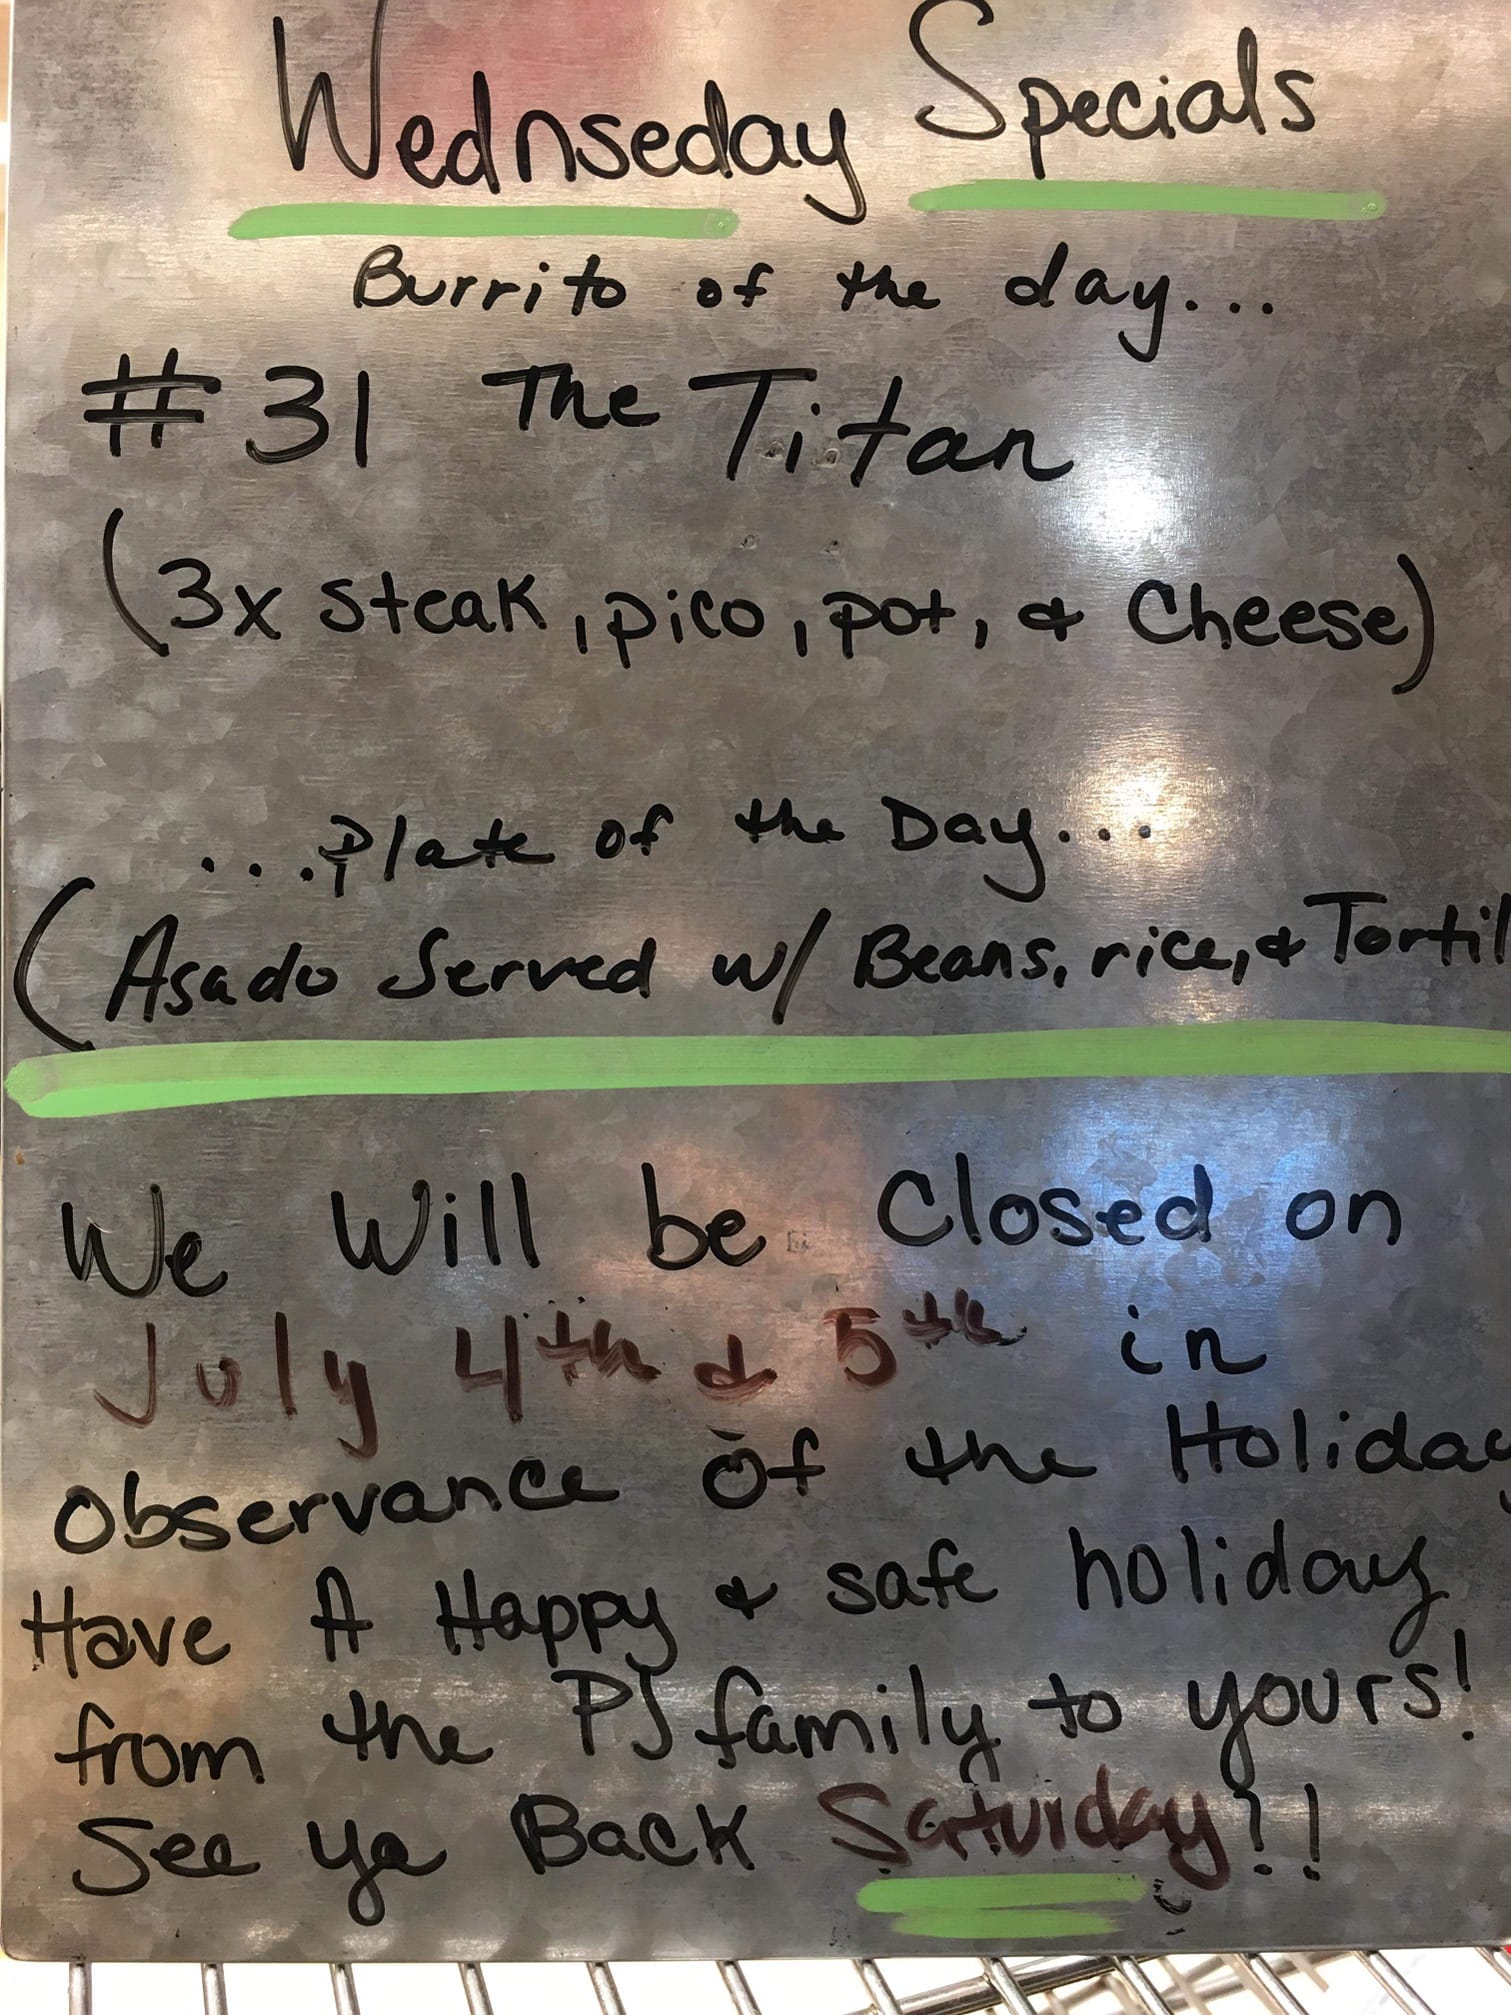 Wednseday Specials
Burrito of the day...
#31 The Titan
(3x steak, pico, pot, & Cheese)
...Plate of the Day...
(Asado Served w/ Beans, rice, & Tortil
We Will be Closed on
July 4th & 5th in
Observance of the Holiday
Have A Happy & safe holiday
from the PJ family to yours!
See ya Back Saturday!!